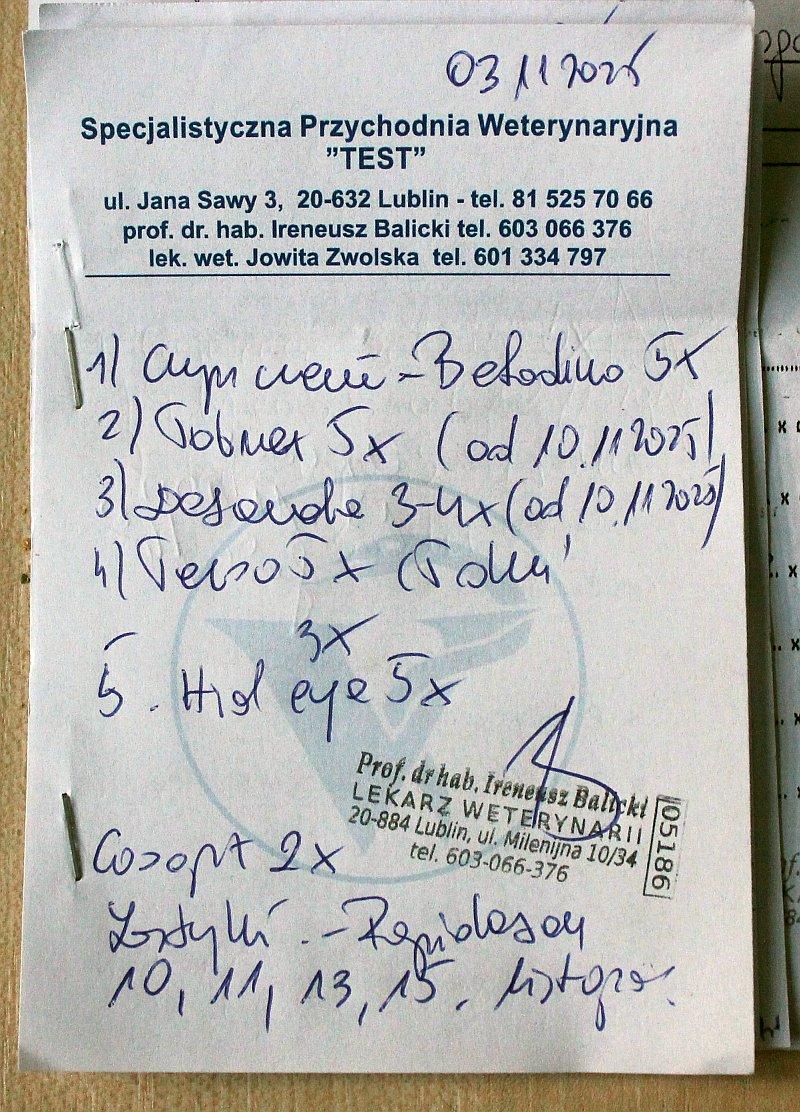 03 11 2025
Specjalistyczna Przychodnia Weterynaryjna
"TEST"
ul. Jana Sawy 3, 20-632 Lublin - tel. 81 525 70 66
prof. dr. hab. Ireneusz Balicki tel. 603 066 376
lek. wet. Jowita Zwolska tel. 601 334 797
1) - Betadine 5x
2) Tobrex 5x (od 10.11 2025)
3) 3-4x (od 10.11 2025)
4) 5x
3x
5. Hial eye 5x
Prof. dr hab. Ireneusz Balicki
LEKARZ WETERYNARII
20-884 Lublin, ul. Milenijna 10/34
tel. 603-066-376
05186
Cosopt 2x
Zastyki - Rapidexon
10, 11, 13, 15. listopad